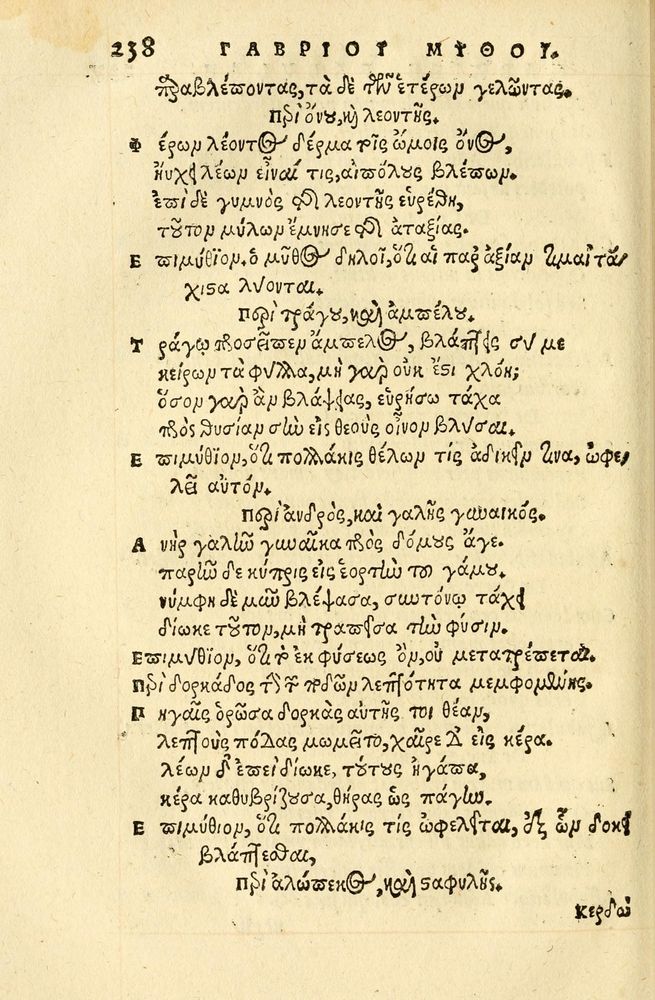 238 ΓΑΒΡΙΟΥ ΜΥΘΟΙ.
παραβλέποντας, τὰ δὲ τῶν ἑτέρων γελῶντας.
Περὶ ὄνου, καὶ λεοντῆς.
Φέρων λέοντος δέρμα τοῖς ὤμοις ὄνος,
ηὔχει λέων εἶναί τις, αἰπόλους βλέπων.
ἐπεὶ δὲ γυμνὸς τῆς λεοντῆς εὑρέθη,
τοῦτον μύλων ἔμνησε τῆς ἀταξίας.
Ἐπιμύθιον. ὁ μῦθος δηλοῖ, ὅτι αἱ παρ' ἀξίαν τιμαὶ τά-
χιστα λύονται.
Περὶ τράγου, καὶ ἀμπέλου.
Τράγῳ προσεῖπεν ἄμπελος, βλάπτεις σύ με
κείρων τὰ φύλλα, μὴ γὰρ οὐκ ἔστι χλόη;
ὅσον γὰρ ἂν βλάψῃς, εὑρήσω τάχα
πρὸς θυσίαν σὴν εἰς θεοὺς οἶνον βλύσαι.
Ἐπιμύθιον, ὅτι πολλάκις θέλων τίς ἀδικεῖν τινα, ὠφε-
λεῖ αὐτόν.
Περὶ ἀνδρὸς, καὶ γαλῆς γυναικός.
Ἀνὴρ γαλῆν γυναῖκα πρὸς δόμους ἄγε.
παρῆν δὲ κύπρις εἰς ἑορτὴν του γάμου.
νύμφη δὲ μῦν βλέψασα, συντόνῳ τάχει
δίωκε τοῦτον, μὴ τραπεῖσα τὴν φύσιν.
Ἐπιμύθιον, ὅτι τὸ ἐκ φύσεως ὂν, οὐ μετατρέπεται.
Περὶ δορκάδος τὴν τῶν ποδῶν λεπτότητα μεμφομένης.
Πηγαῖς ὁρῶσα δορκὰς αὐτῆς τοι θέαν,
λεπτοὺς πόδας μωμεῖτο, χαῖρε δ' εἰς κέρα.
λέων δ' ἐπεὶ δίωκε, τούτους ἠγάπα,
κέρα καθυβρίζουσα, θῆρας ὡς πάγην.
Ἐπιμύθιον, ὅτι πολλάκις τίς ὠφελεῖται, ἐξ ὧν δοκεῖ
βλάπτεσθαι,
Περὶ ἀλώπεκος, καὶ σταφυλῆς.
Κερδὼ